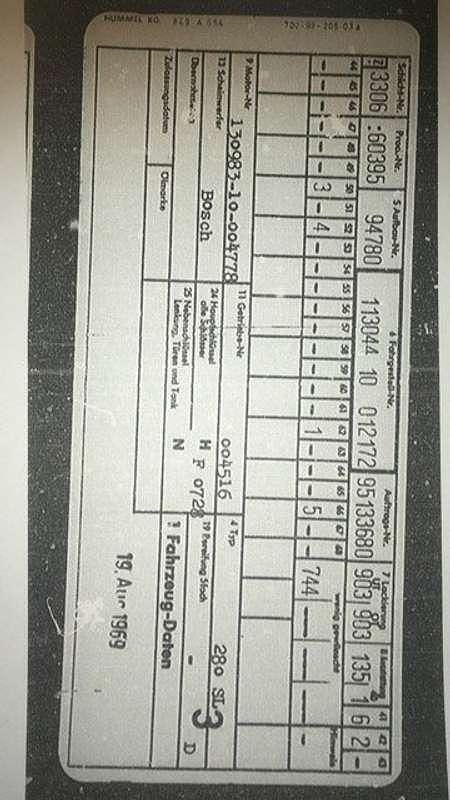 HUMMEL KG. 849 A 664 700-99-205-03A
Schicht-Nr. Prod.-Nr. 5 Aufbau-Nr. 6 Fahrgestell-Nr. Auftrags-Nr. 7 Lackierung 8 Ausstattung 41 42 43
3306 :60395 94780 113044 10 012172 95133680 903 903 135 1 6 2 -
44 45 46 47 48 49 50 51 52 53 54 55 56 57 58 59 60 61 62 63 64 65 66 67 68 wenig gebraucht Hinweis
- - - - - - 3 - 4 - - - - - - - - - 1 - - - 5 - - 744
9 Motor-Nr 11 Getriebe-Nr 4 Typ
130983-10-004778 004516 280 SL 3
13 Scheinwerfer 24 Hauptschlüssel alle Schlösser 19 Bereifung 5fach
Bosch H F 0728 - D
25 Nebenschlüssel
Lenkung, Türen und Tank N
1 Fahrzeug-Daten
Zulassungsdatum Ölmarke
19. AUG 1969